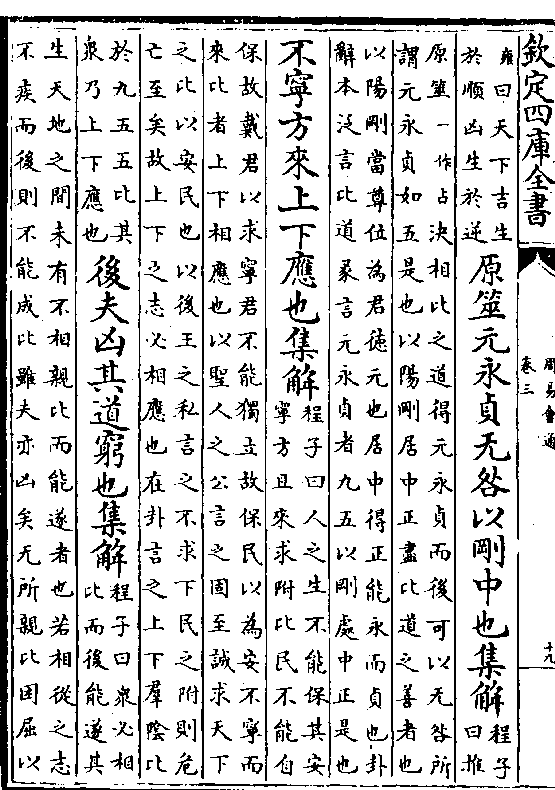 欽定四庫全書
周易會通
卷三
十九
雍曰天下吉生
於順凶生於逆
原筮元永貞无咎以剛中也集解
程子
曰推
原筮一作占決相比之道得元永貞而後可以无咎所
謂元永貞如五是也以陽剛居中正盡比道之善者也
以陽剛當尊位為君德元也居中得正能永而貞也卦
辭本泛言比道彖言元永貞者九五以剛處中正是也
不寧方來上下應也集解
程子曰人之生不能保其安
寧方且來求附比民不能自
保故戴君以求寧君不能獨立故保民以為安不寧而
來比者上下相應也以聖人之公言之固至誠求天下
之比以安民也以後王之私言之不求下民之附則危
亡至矣故上下之志必相應也在卦言之上下羣陰比
於九五五比其
衆乃上下應也
後夫凶其道窮也集解
程子曰衆必相
比而後能遂其
生天地之間未有不相親比而能遂者也若相從之志
不疾而後則不能成比雖夫亦凶矣无所親比困屈以